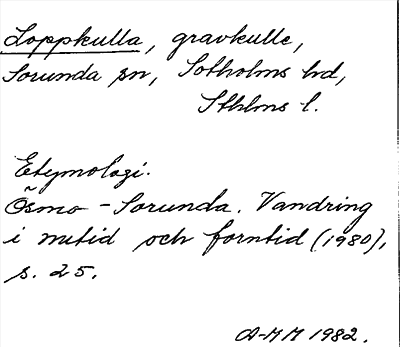 Loppkulla, gravkulle,
Sorunda sn, Sotholms hd,
Sthlms l.
Etymologi.
Ösmo - Sorunda. Vandring
i nutid och forntid (1980),
s. 25.
A-MM 1982.